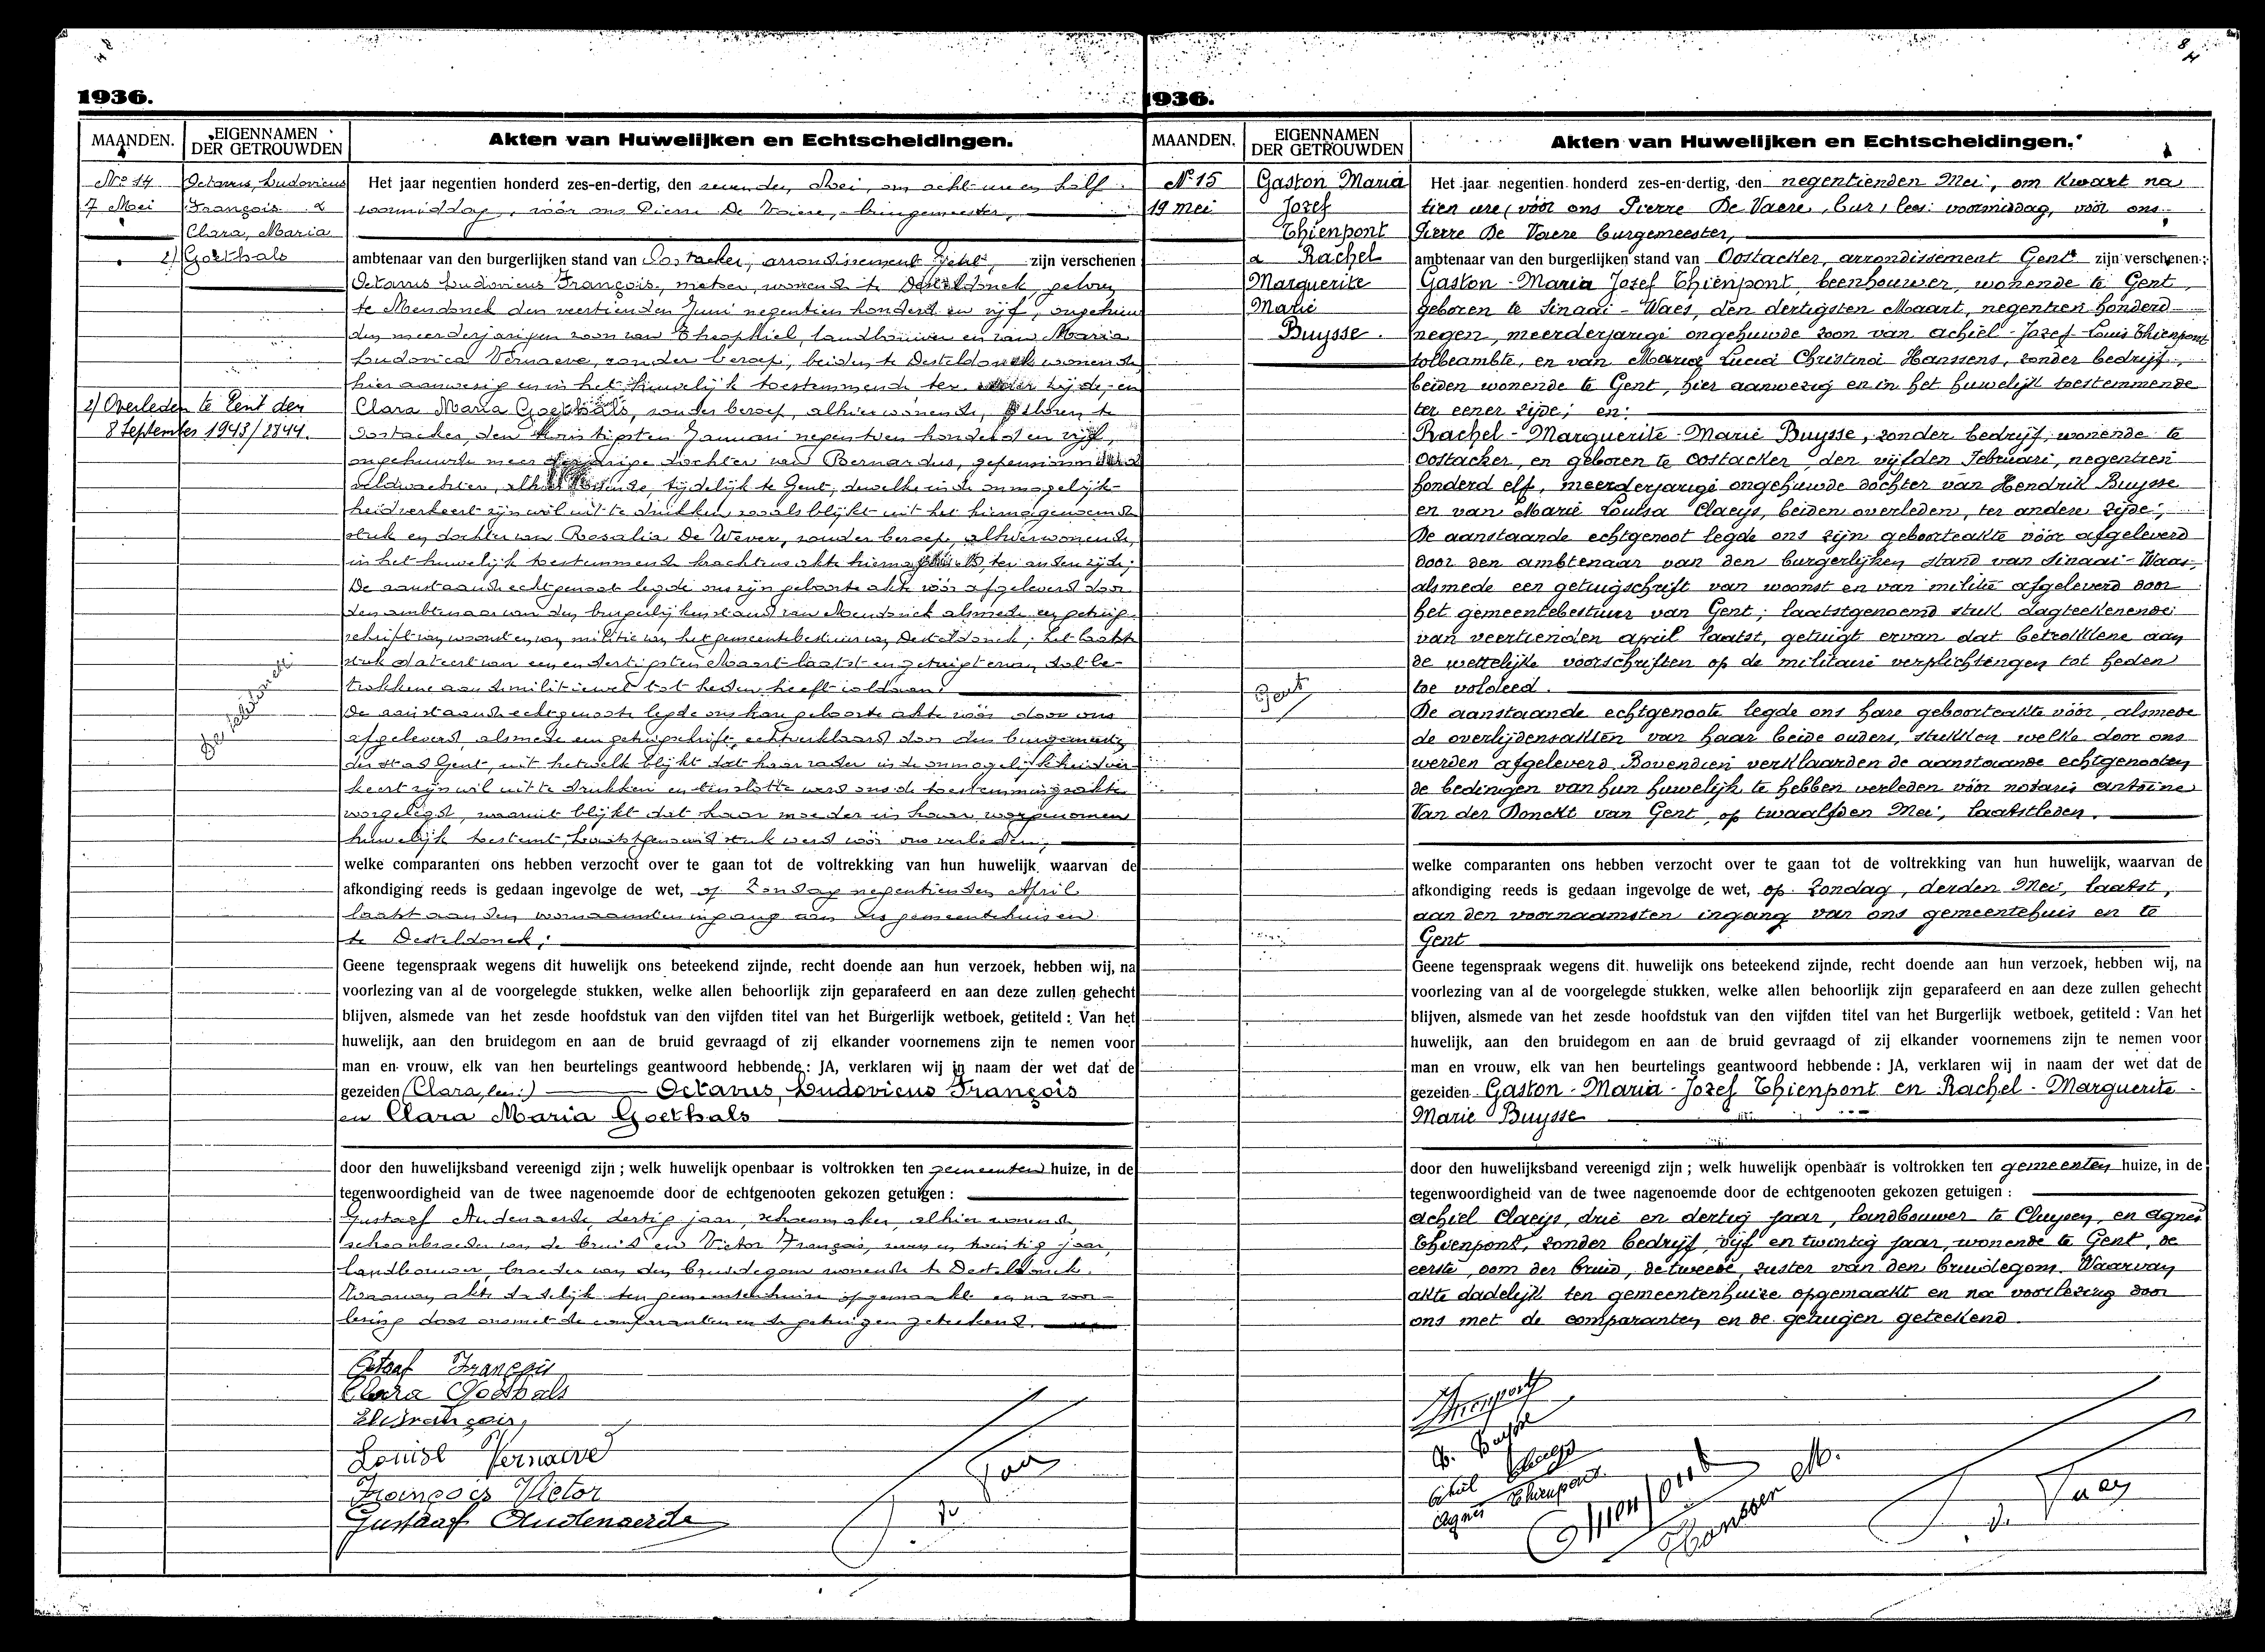 1936.
MAANDEN.
EIGENNAMEN
DER GETROUWDEN
Akten van Huwelijken en Echtscheidingen.
No 14
7 Mei
Octavus, Ludovicus
François &
Clara, Maria
2) Goethals
2) Overleden te Gent den
8 September 1943/2844.
Desteldonck
Het jaar negentien honderd zes-en-dertig, den zevenden Mei, om acht uren half
voormiddag, vóór ons Pierre De Vaere, burgemeester,
ambtenaar van den burgerlijken stand van Oostacker, arrondissement Gent, zijn verschenen
Octavus Ludovicus François, metser, wonende te Desteldonck, geboren
te Mendonck den veertienden Juni negentien honderd en vijf, ongehuw
den meerderjarigen zoon van Theophiel, landbouwer en van Maria
Ludovica Vernaeve, zonder beroep, beiden te Desteldonck wonende
hier aanwezig en in het huwelijk toestemmende ter eener zijde, en
Clara Maria Goethals, zonder beroep, alhier wonende, geboren te
Oostacker, den twintigsten Januari negentien honderd en vijf,
ongehuwde meerderjarige dochter van Bernardus, gepensionneerd
veldwachter, tijdelijk te Gent, dewelke in de onmogelijk-
heid verkeert zijn wil uit te drukken, zooals blijkt uit het hiernagenoemde
stuk en dochter van Rosalia De Wever, zonder beroep, alhier wonende,
in het huwelijk toestemmende krachtens akte hierna gemeld, ter andere zijde;
De aanstaande echtgenoot legde ons zijn geboorte akte vóór afgeleverd door
den ambtenaar van den burgerlijken stand van Mendonck alsmede een getuig-
schrift van woonst en van militie van het gemeentebestuur van Desteldonck; het laatste
stuk dateert van een en dertigsten Maart laatst en getuigt ervan dat be-
trokkene aan de militiewet tot heden heeft voldaan.
De aanstaande echtgenoote legde ons hare geboorte akte vóór door ons
afgeleverd, alsmede een getuigschrift, echtverklaard door den burgemeester
der stad Gent, uit hetwelk blijkt dat haar vader in de onmogelijkheid ver-
keert zijn wil uit te drukken en tenslotte werd ons de toestemmingsakte
voorgelegd, waaruit blijkt dat haar moeder in haar voorgenomen
huwelijk toestemt, laatstgenoemd stuk werd vóór ons verleden;
welke comparanten ons hebben verzocht over te gaan tot de voltrekking van hun huwelijk, waarvan de
afkondiging reeds is gedaan ingevolge de wet, op Zondag negentienden April
laatst aan den voornaamsten ingang van ons gemeentehuis en
te Desteldonck;
Geene tegenspraak wegens dit huwelijk ons beteekend zijnde, recht doende aan hun verzoek, hebben wij, na
voorlezing van al de voorgelegde stukken, welke allen behoorlijk zijn geparafeerd en aan deze zullen gehecht
blijven, alsmede van het zesde hoofdstuk van den vijfden titel van het Burgerlijk wetboek, getiteld : Van het
huwelijk, aan den bruidegom en aan de bruid gevraagd of zij elkander voornemens zijn te nemen voor
man en vrouw, elk van hen beurtelings geantwoord hebbende : JA, verklaren wij in naam der wet dat de
gezeiden (Clara, lees:) Octavus, Ludovicus François
en Clara Maria Goethals
door den huwelijksband vereenigd zijn ; welk huwelijk openbaar is voltrokken ten gemeenten huize, in de
tegenwoordigheid van de twee nagenoemde door de echtgenooten gekozen getuigen :
Gustaef Audenaerde, dertig jaar, schoenmaker, alhier wonende,
schoonbroeder van de bruid en Victor François, en twintig jaar,
landbouwer, broeder van den bruidegom wonende te Desteldonck.
Waarvan akte dadelijk ten gemeentenhuize opgemaakt en na voor-
lezing door ons met de comparanten en de getuigen geteekend.
Octaaf François
Clara Goethals
François,
Louise Vernaeve
François Victor
Gustaaf Audenaerde
1936.
MAANDEN.
EIGENNAMEN
DER GETROUWDEN
Akten van Huwelijken en Echtscheidingen.
No 15
19 mei
Gaston Maria
Jozef
Thienpont
& Rachel
Marguerite
Marie
Buysse.
Gent
Het jaar negentien honderd zes-en-dertig, den negentienden Mei, om kwart na
tien ure (vóór ons Pierre De Vaere, bur) lees: voormiddag, vóór ons
Pierre De Vaere burgemeester,
ambtenaar van den burgerlijken stand van Oostacker, arrondissement Gent zijn verschenen :
Gaston-Maria Jozef Thienpont, beenhouwer, wonende te Gent,
geboren te Sinaai-Waes, den dertigsten Maart, negentien honderd
negen, meerderjarige ongehuwde zoon van Achiel-Jozef-Louis Thienpont
tolbeambte, en van Maria Lucia Christina Hanssens, zonder bedrijf,
beiden wonende te Gent, hier aanwezig en in het huwelijk toestemmende
ter eener zijde; en:
Rachel-Marguerite-Marie Buysse, zonder bedrijf, wonende te
Oostacker, en geboren te Oostacker, den vijfden Februari, negentien
honderd elf, meerderjarige ongehuwde dochter van Hendrik Buysse
en van Marie Louisa Claeys, beiden overleden, ter andere zijde;
De aanstaande echtgenoot legde ons zijn geboorteakte vóór afgeleverd
door den ambtenaar van den burgerlijken stand van Sinaai-Waas,
alsmede een getuigschrift van woonst en van militie afgeleverd door
het gemeentebestuur van Gent; laatstgenoemd stuk dagteekenende
van veertienden april laatst, getuigt ervan dat betrokkene aan
de wettelijke voorschriften op de militaire verplichtingen tot heden
toe voldeed.
De aanstaande echtgenoote legde ons hare geboorteakte vóór, alsmede
de overlijdensakten van haar beide ouders, stukken welke door ons
werden afgeleverd. Bovendien verklaarden de aanstaande echtgenooten
de bedingen van hun huwelijk te hebben verleden vóór notaris Antoine
Van der Donckt van Gent, op twaalfden Mei, laatstleden.
welke comparanten ons hebben verzocht over te gaan tot de voltrekking van hun huwelijk, waarvan de
afkondiging reeds is gedaan ingevolge de wet, op Zondag, derden Mei, laatst,
aan den voornaamsten ingang van ons gemeentehuis en te
Gent
Geene tegenspraak wegens dit huwelijk ons beteekend zijnde, recht doende aan hun verzoek, hebben wij, na
voorlezing van al de voorgelegde stukken, welke allen behoorlijk zijn geparafeerd en aan deze zullen gehecht
blijven, alsmede van het zesde hoofdstuk van den vijfden titel van het Burgerlijk wetboek, getiteld : Van het
huwelijk, aan den bruidegom en aan de bruid gevraagd of zij elkander voornemens zijn te nemen voor
man en vrouw, elk van hen beurtelings geantwoord hebbende : JA, verklaren wij in naam der wet dat de
gezeiden Gaston-Maria-Jozef Thienpont en Rachel-Marguerite-
Marie Buysse
door den huwelijksband vereenigd zijn ; welk huwelijk openbaar is voltrokken ten gemeenten huize, in de
tegenwoordigheid van de twee nagenoemde door de echtgenooten gekozen getuigen :
Achiel Claeys, drie en dertig jaar, landbouwer te Cluysen, en Agnes
Thienpont, zonder bedrijf, vijf en twintig jaar, wonende te Gent, de
eerste, oom der bruid, de tweede, zuster van den bruidegom. Waarvan
akte dadelijk ten gemeentenhuize opgemaakt en na voorlezing door
ons met de comparanten en de getuigen geteekend.
Thienpont
R. Buysse
Achiel Claeys
Agnes Thienpont
Hanssens M.